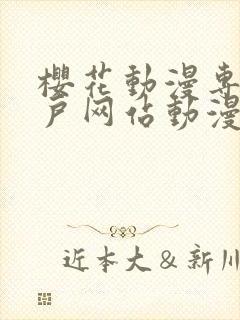 櫻花動漫專
户网站動漫
近本大＆新川